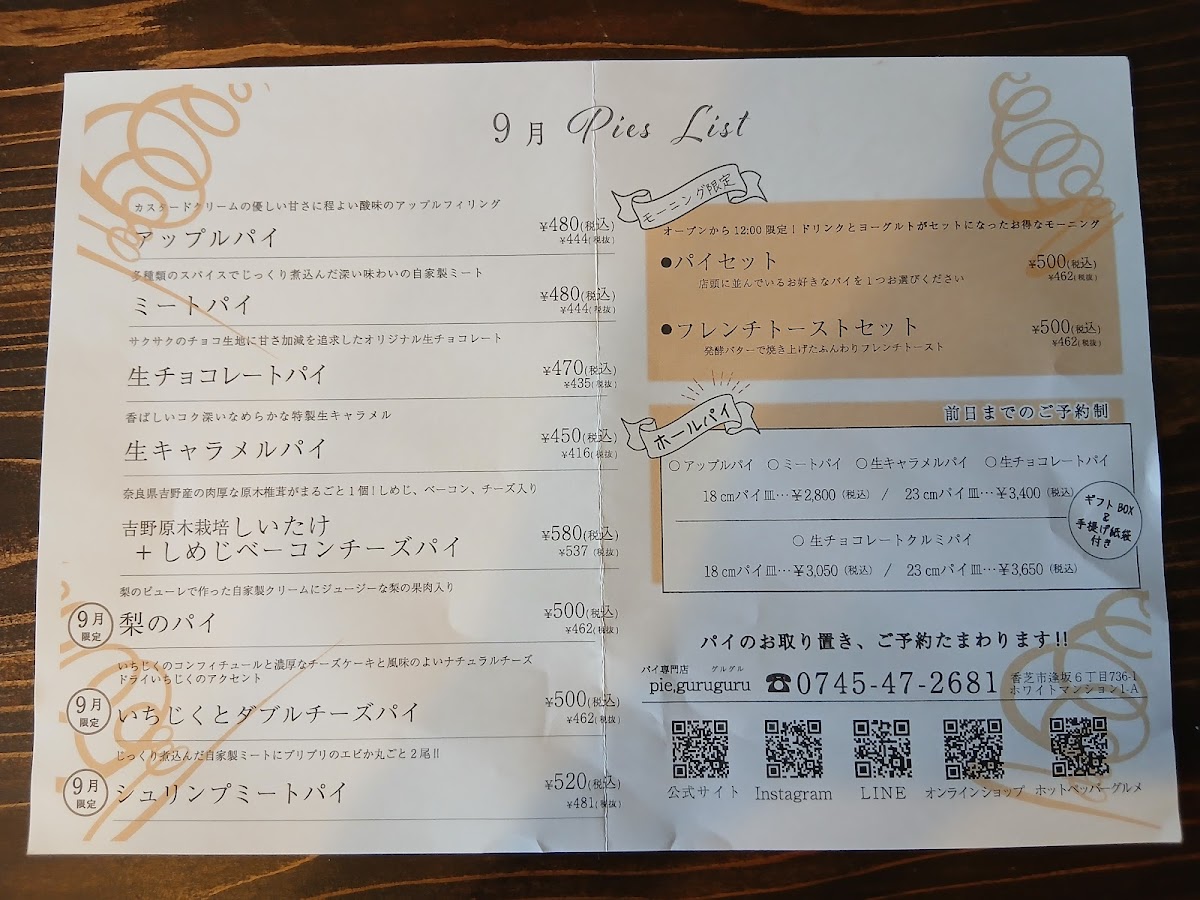 9月 Pies List
カスタードクリームの優しい甘さに程よい酸味のアップルフィリング
アップルパイ ¥480(税込)
¥444(税抜)
多種類のスパイスでじっくり煮込んだ深い味わいの自家製ミート
ミートパイ ¥480(税込)
¥444(税抜)
サクサクのチョコ生地に甘さ加減を追求したオリジナル生チョコレート
生チョコレートパイ ¥470(税込)
¥435(税抜)
香ばしいコク深いなめらかな特製生キャラメル
生キャラメルパイ ¥450(税込)
¥416(税抜)
奈良県吉野産の肉厚な原木椎茸がまるごと1個!しめじ、ベーコン、チーズ入り
吉野原木栽培しいたけ
+しめじベーコンチーズパイ ¥580(税込)
¥537(税抜)
梨のピューレで作った自家製クリームにジュージーな梨の果肉入り
9月限定 梨のパイ ¥500(税込)
¥462(税抜)
いちじくのコンフィチュールと濃厚なチーズケーキと風味のよいナチュラルチーズ
ドライいちじくのアクセント
9月限定 いちじくとダブルチーズパイ ¥500(税込)
¥462(税抜)
じっくり煮込んだ自家製ミートにプリプリのエビが丸ごと2尾!!
9月限定 シュリンプミートパイ ¥520(税込)
¥481(税抜)
モーニング限定
オープンから12:00限定!ドリンクとヨーグルトがセットになったお得なモーニング
●パイセット ¥500(税込)
店頭に並んでいるお好きなパイを1つお選びください ¥462(税抜)
●フレンチトーストセット ¥500(税込)
発酵バターで焼き上げたふんわりフレンチトースト ¥462(税抜)
ホールパイ
前日までのご予約制
○アップルパイ ○ミートパイ ○生キャラメルパイ ○生チョコレートパイ
18㎝パイ皿…¥2,800(税込) / 23㎝パイ皿…¥3,400(税込)
○生チョコレートクルミパイ
18㎝パイ皿…¥3,050(税込) / 23㎝パイ皿…¥3,650(税込)
ギフトBOX
&
手提げ紙袋
付き
パイのお取り置き、ご予約たまわります!!
パイ専門店 グルグル
pie,guruguru ☎0745-47-2681
香芝市逢坂6丁目736-1
ホワイトマンション1-A
公式サイト Instagram LINE オンラインショップ ホットペッパーグルメ